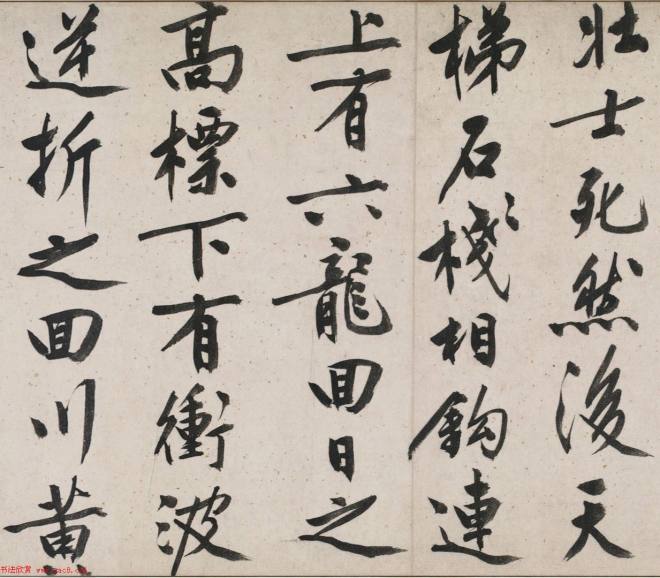 壯士死然後天
梯石棧相鉤連
上有六龍回日之
高標下有衝波
逆折之回川黃
书法欣赏